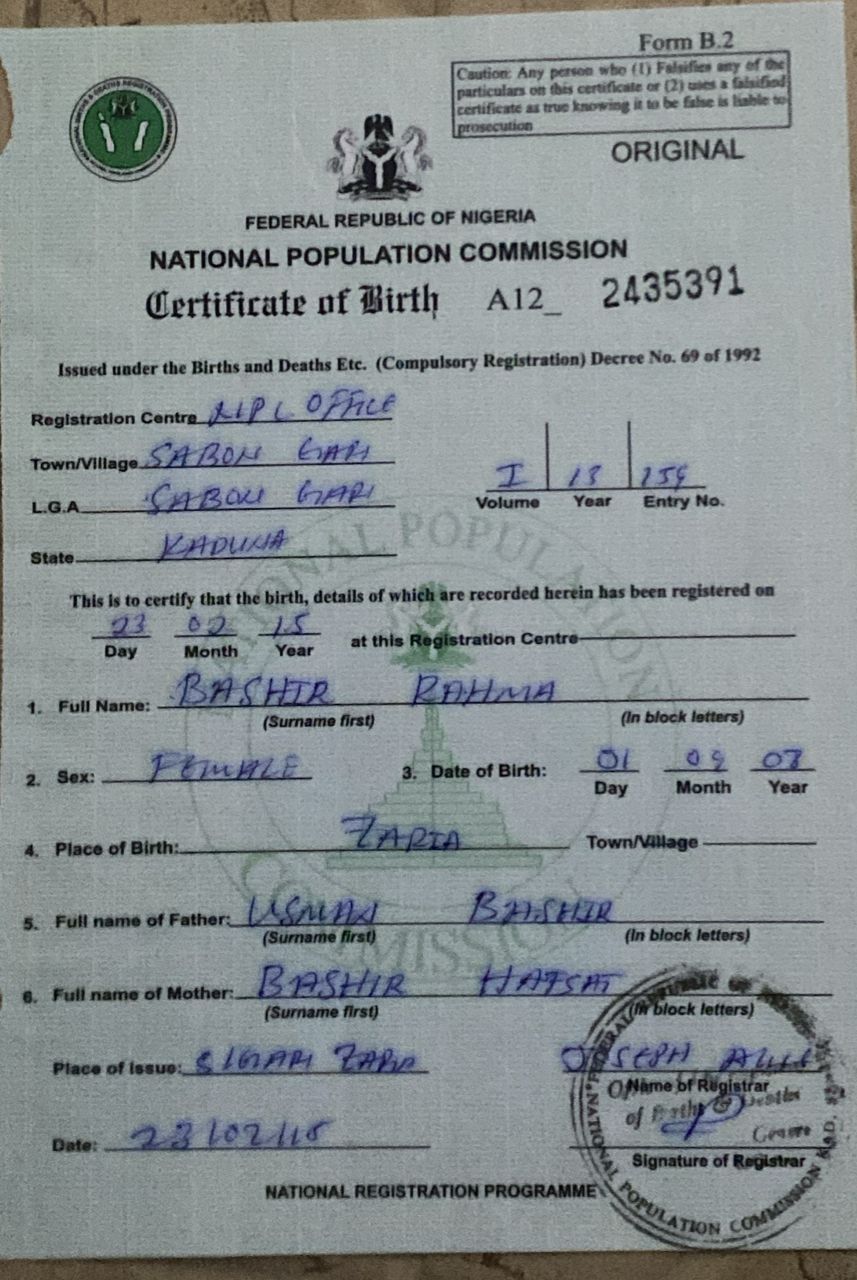 Form B.2
Caution: Any person who (1) Falsifies any of the
particulars on this certificate or (2) uses a falsified
certificate as true knowing it to be false is liable to
prosecution
ORIGINAL
FEDERAL REPUBLIC OF NIGERIA
NATIONAL POPULATION COMMISSION
Certificate of Birth A12_ 2435391
Issued under the Births and Deaths Etc. (Compulsory Registration) Decree No. 69 of 1992
Registration Centre OFFICE
Town/Village SABON GARI
L.G.A SABON GARI
I 13
Volume Year Entry No.
State KADUNA
This is to certify that the birth, details of which are recorded herein has been registered on
23 02 15
Day Month Year at this Registration Centre
1. Full Name: BASHIR RAHMA
(Surname first) (In block letters)
2. Sex: FEMALE 3. Date of Birth: 01 09
Day Month Year
4. Place of Birth: ZARIA Town/Village
5. Full name of Father: USMAN BASHIR
(Surname first) (In block letters)
6. Full name of Mother: BASHIR HAFSAT
(Surname first) (In block letters)
Place of Issue: S/GARI ZARIA JOSEPH
Name of Registrar
Date: 23/02/15
Signature of Registrar
NATIONAL REGISTRATION PROGRAMME
NATIONAL POPULATION COMMISSION